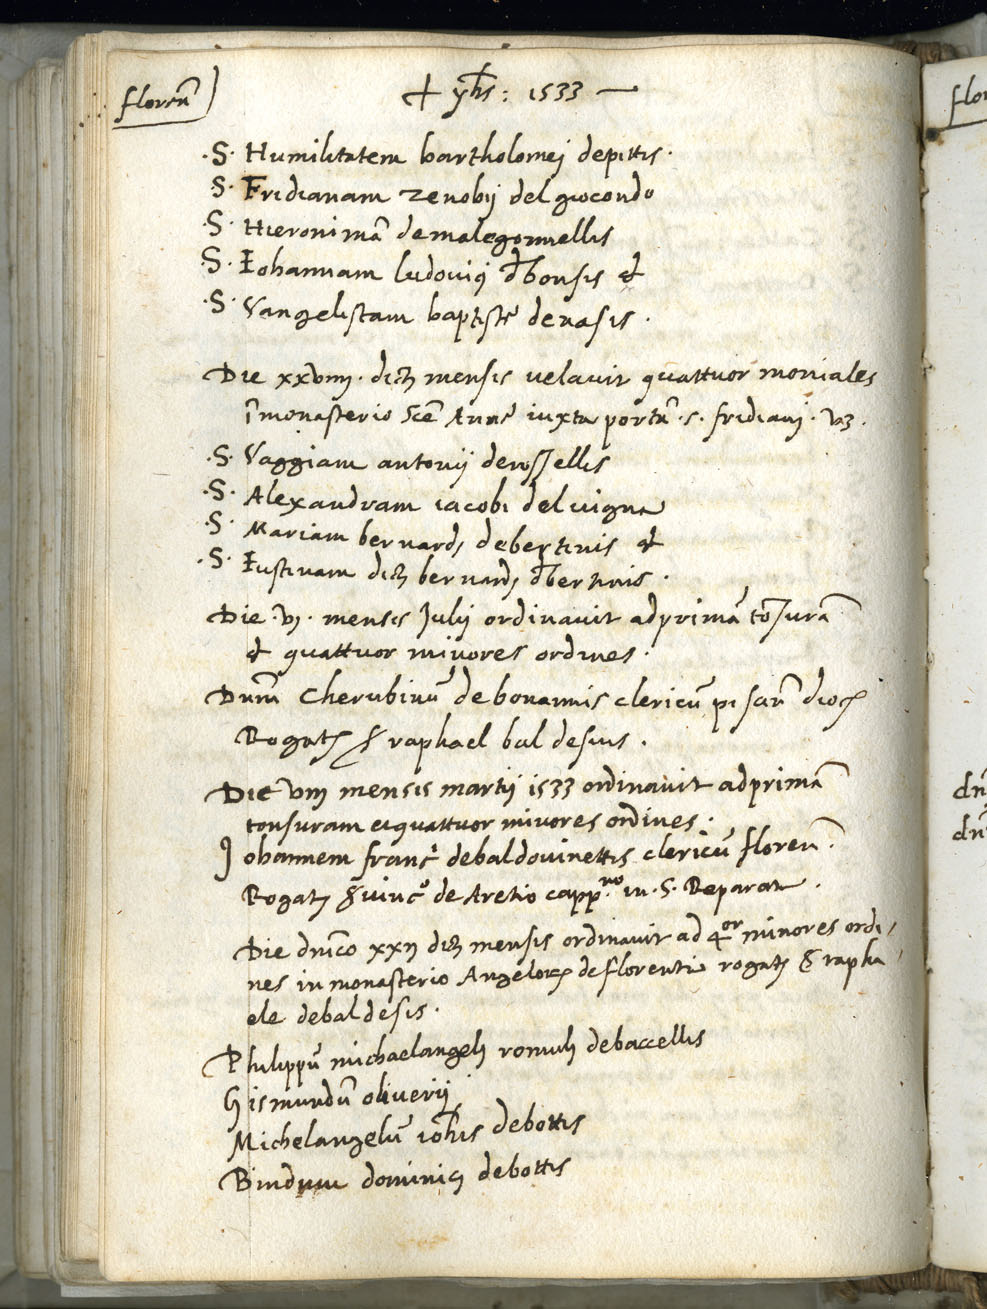 floren̄
+ yħs : 1533 —
·S· Humilitatem bartholomej depittis ·
S· Fridianam zenobij del giocondo
·S· Hieronimā demalegonnellis
·S· Iohannam ludovicj d̄bonsis &
·S· Vangelistam baptistę denasis ·
Die xxviiij · dictj mensis velavit quattuor moniales
ī monasterio Scē Annę iuxta portā · s · fridianj · vz ·
·S· Vaggiam antonij derossellis
·S· Alexandram iacobi del vigna
·S· Mariam bernardj debertinis &
·S· Iustinam dictj bernardj d̄bertinis ·
Die · vj · mensis Julij ordinavit adprimā tōsurā
& quattuor minores ordines ·
Dnm̄ Cherubinū de bonannis clericū pisan̄ dioc
Rogatj s raphael baldesius ·
Die viij mensis martij 1533 ordinavit adprimā
tonsuram et quattuor minores ordines ·
Johannem franc̄ debaldovinettis clericū floren̄ ·
Rogatj s vinc̄o de Aretio capp.no in · S · Reparata ·
Die dnīco xxij dictj mensis ordinavit ad 4or minores ordi
nes in monasterio Angelorum deflorentia rogatj s rapha
ele debaldesis ·
Philippū michaelangelj romulj debaccellis
Gismundū oliverij
Michelangelū ioħis debottis
Bindum dominicj debottis
flor
dn̄
dn̄